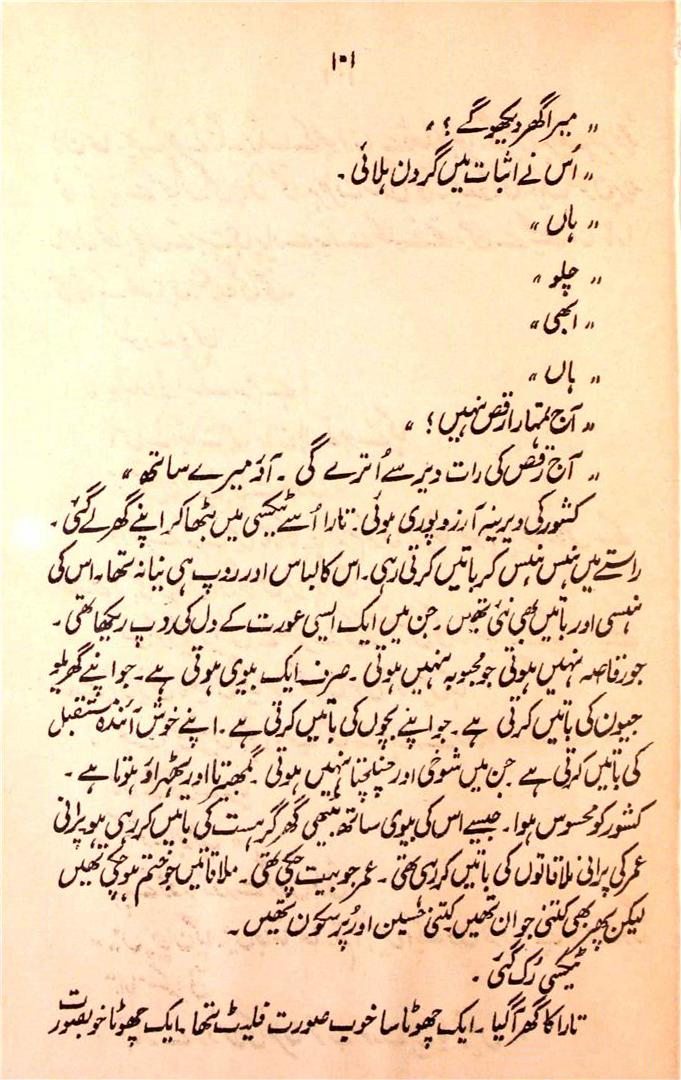 ۱۰۱
„ میرا گھر دیکھو گے ؟ “
„ اُس نے اثبات میں گردن ہلائی ۔
„ ہاں “
„ چلو “
„ ابھی “
„ ہاں “
„ آج تمہارا رقص نہیں ؟ “
„ آج رقص کی رات دیر سے اُترے گی ۔ آؤ میرے ساتھ “
کشور کی دیرینہ آرزو پوری ہوئی ۔ تارا اُسے ٹیکسی میں بٹھا کر اپنے گھر لے گئی ۔
راستے میں ہنس ہنس کر باتیں کرتی رہی ۔ اس کا لباس اور روپ ہی نیا نہ تھا ۔ اس کی
ہنسی اور باتیں بھی نئی تھیں ۔ جن میں ایک ایسی عورت کے دل کی روپ ریکھا تھی ۔
جو رقاصہ نہیں ہوتی جو محبوبہ نہیں ہوتی ۔ صرف ایک بیوی ہوتی ہے ۔ جو اپنے گھریلو
جیون کی باتیں کرتی ہے ۔ جو اپنے بچوں کی باتیں کرتی ہے ۔ اپنے خوش آئندہ مستقبل
کی باتیں کرتی ہے جن میں شوخی اور چنچلتا نہیں ہوتی ۔ گمبھیرتا اور ٹھہراؤ ہوتا ہے ۔
کشور کو محسوس ہوا ۔ جیسے اس کی بیوی ساتھ بیٹھی گھر گرہست کی باتیں کر رہی ہو پرانی
عمر کی پرانی ملاقاتوں کی باتیں کر رہی تھی ۔ عمر جو بیت چکی تھی ۔ ملاقاتیں جو ختم ہو چکی تھیں
لیکن پھر بھی کتنی جوان تھیں کتنی حسین اور پُر سکون تھیں ۔
ٹیکسی رُک گئی ۔
تارا کا گھر آ گیا ۔ ایک چھوٹا سا خوب صورت فلیٹ تھا ۔ ایک چھوٹا خوبصورت